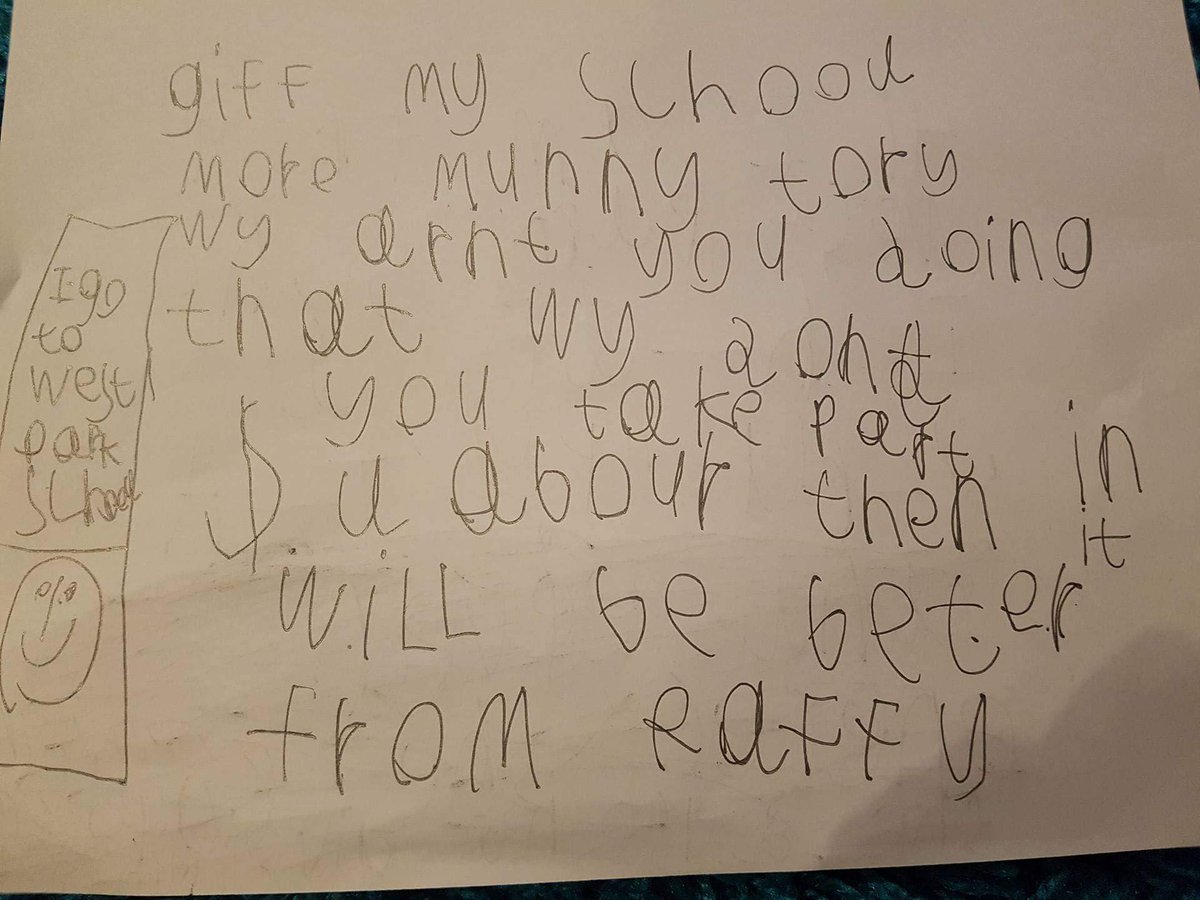 giff my school
more munny tory
wy arnt you doing
that wy dont
you take part in
labour then it
will be beter
from raffy
I go
to
west
park
school